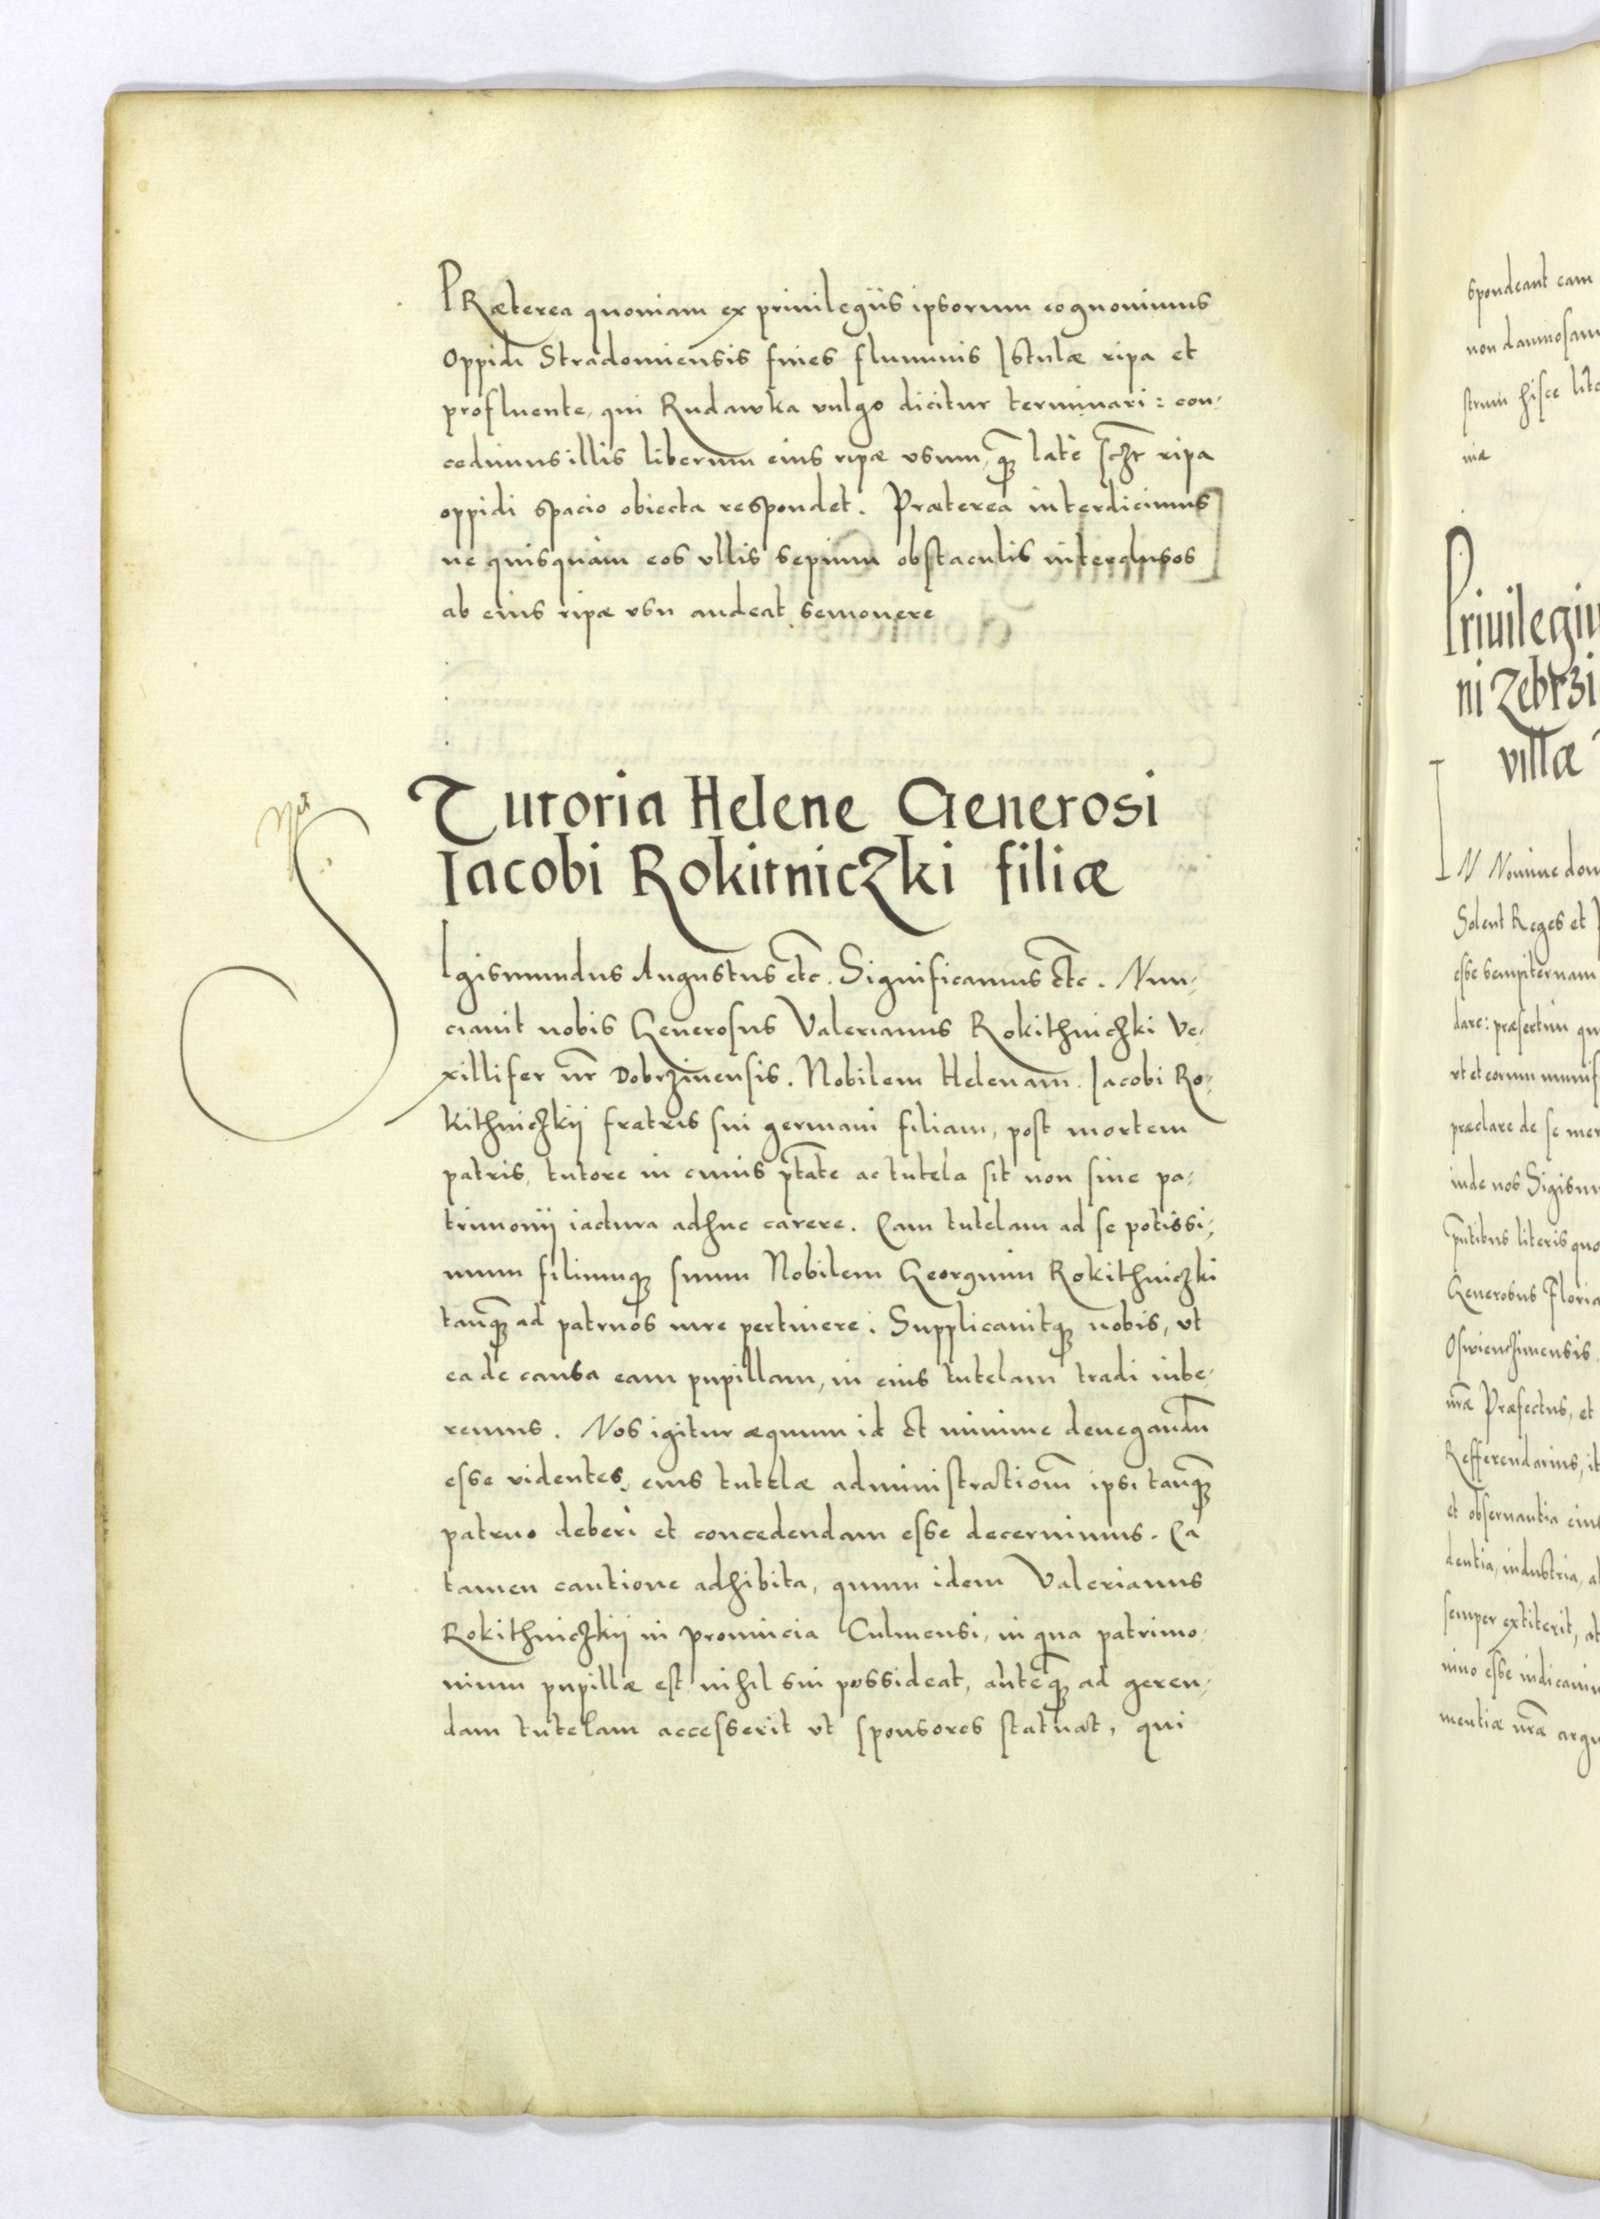 PRæterea quoniam ex priuilegiis ipsorum cognouimus
Oppidi Stradomiensis fines fluminis Istulæ ripa et
profluente, qui Rudawka vulgo dicitur terminari: con,
cedimus illis liberum eius ripæ vsum, qȝ late scȝt ripa
oppidi spacio obiecta respondet. Præterea interdicimus
ne quisquam eos vllis sepium obstaculis interclusos
ab eius ripæ vsu audeat semouere
Tutoria Helene Generosi
Iacobi Rokitniczki filiæ
SIgismundus Augustus etc. Significamus etc. Nun,
ciauit nobis Generosus Valerianus Rokithniczki Ve,
xillifer nr̄ Dobrzinensis. Nobilem Helenam Iacobi Ro,
kithniczkij fratris sui germani filiam, post mortem
patris, tutore in cuius ptāte ac tutela sit non sine pa,
trimonij iactura adhuc carere. Eam tutelam ad se potissi,
mum filiumqȝ suum Nobilem Georgium Rokithniczki
tanqȝ ad patruos iure pertinere. Supplicauitqȝ nobis, vt
ea de causa eam pupillam, in eius tutelam tradi iube,
remus. Nos igitur æquum id et minime denegandū
esse videntes, eius tutelæ administrationē ipsi tanqȝ
patruo deberi et concedendam esse decernimus. Ea
tamen cautione adhibita, quum idem Valerianus
Rokithniczkij in prouincia Culmensi, in qua patrimo,
nium pupillæ est nihil sui possideat, anteqȝ ad geren,
dam tutelam accesserit vt sponsores statuat, qui
spondeant eam
non damnosam
strum hisce lite
niæ
Priuilegiu
ni Zebrzi
villæ
IN Nomine dom
Solent Reges et
esse sempiternam
dare: præsertim qu
vt et eorum munif
præclare de se mer
inde nos Sigism
pn̄tibus literis quo
Generosus Floria
Oswienczimensis
nrā Præfectus, et
Refferendarius, it
et obseruantia eius
dentia, industria, a
semper extiterit, at
nino esse iudicauim
mentiæ nrā argu